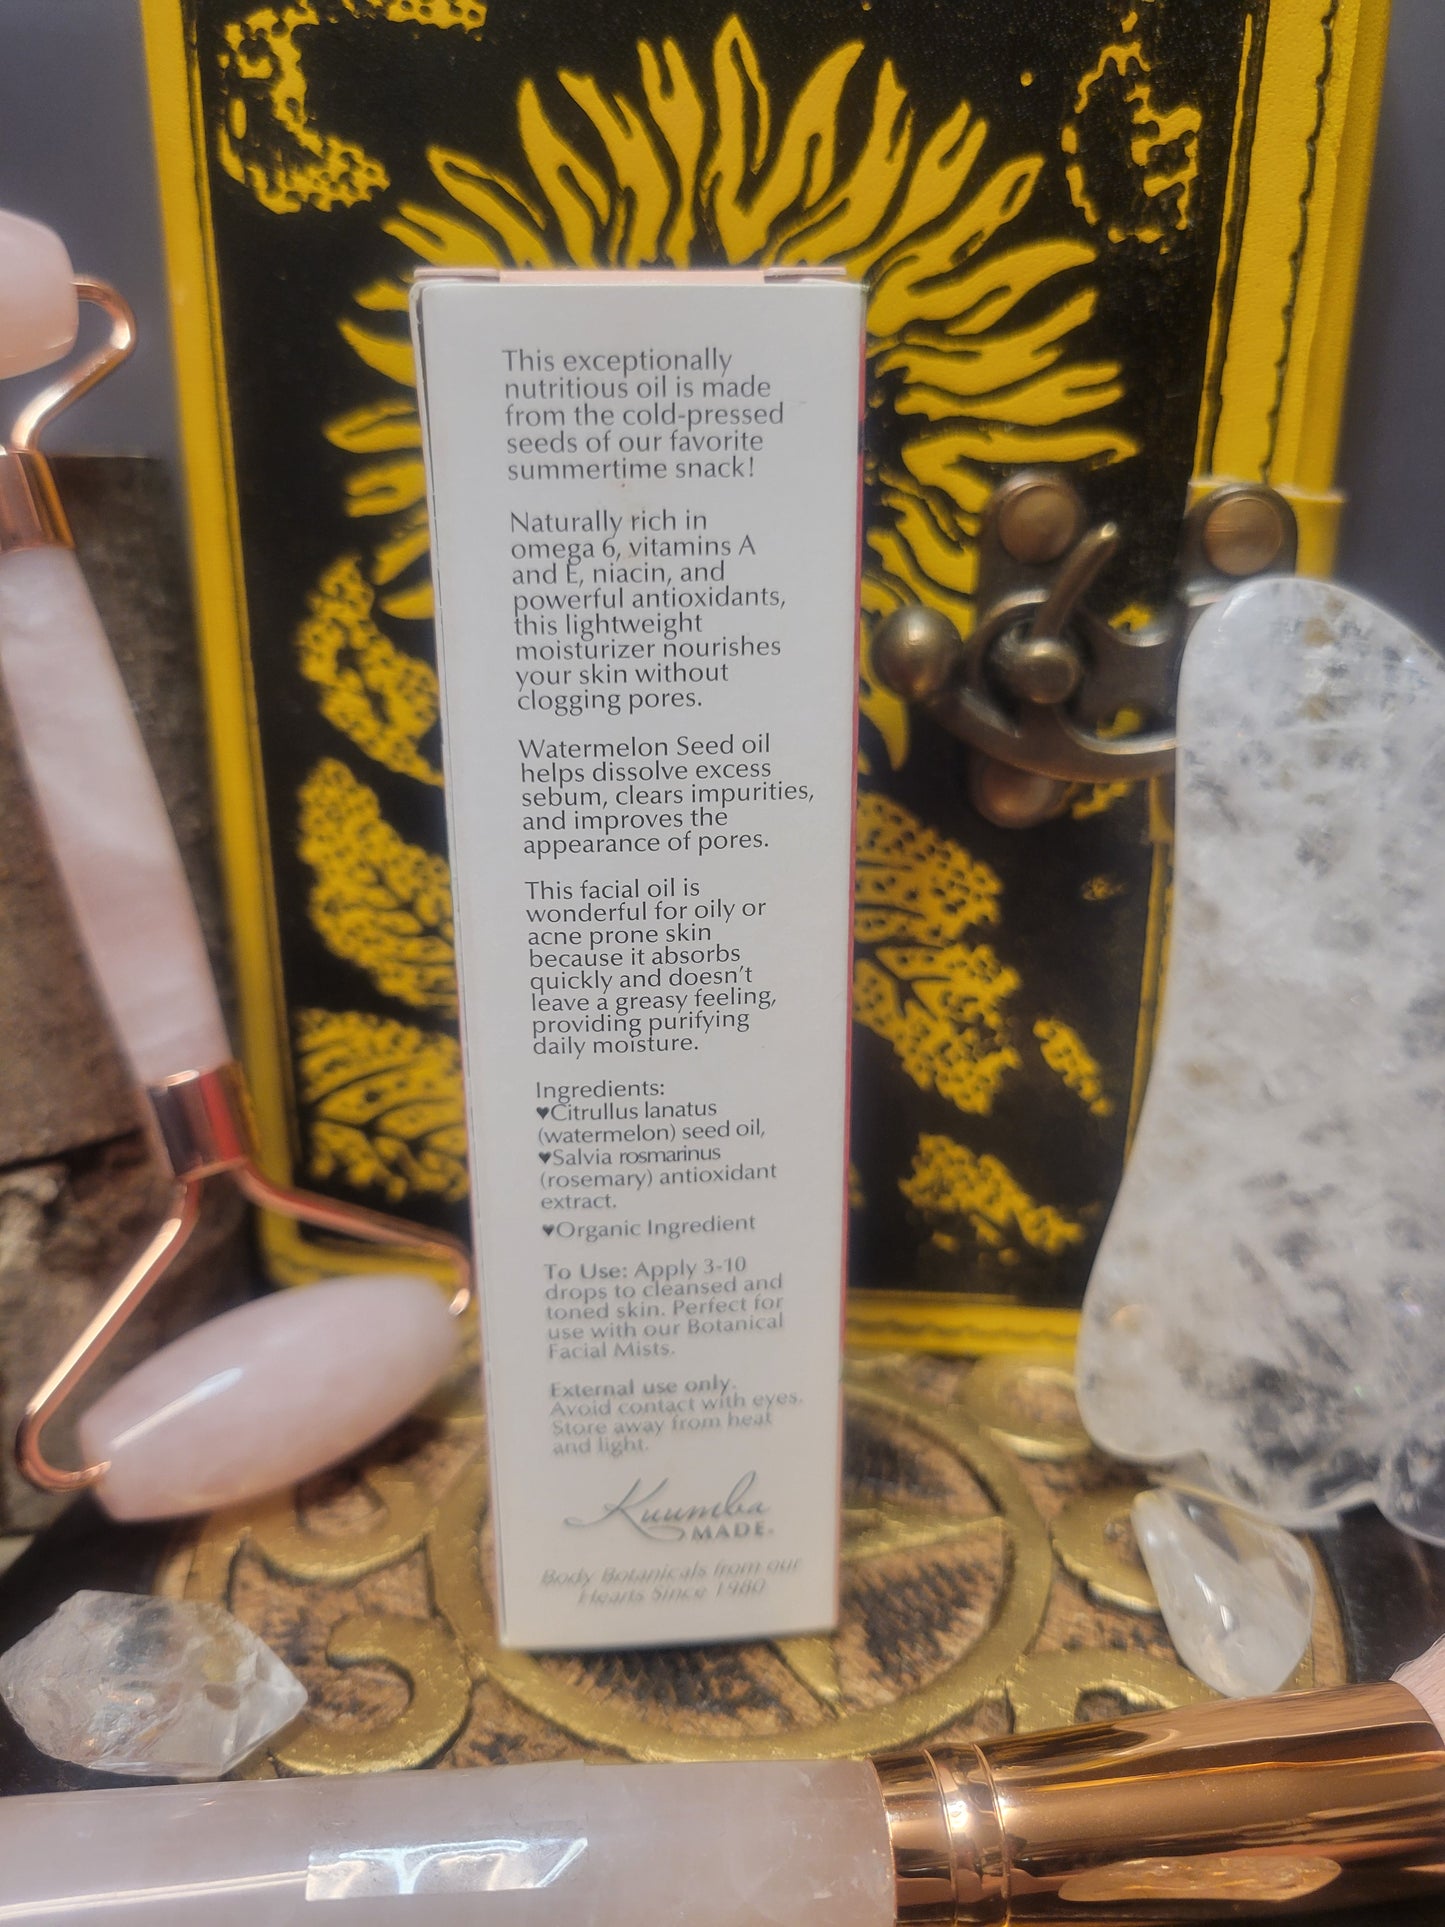 This exceptionally
nutritious oil is made
from the cold-pressed
seeds of our favorite
summertime snack!
Naturally rich in
omega 6, vitamins A
and E, niacin, and
powerful antioxidants,
this lightweight
moisturizer nourishes
your skin without
clogging pores.
Watermelon Seed oil
helps dissolve excess
sebum, clears impurities,
and improves the
appearance of pores.
This facial oil is
wonderful for oily or
acne prone skin
because it absorbs
quickly and doesn't
leave a greasy feeling,
providing purifying
daily moisture.
Ingredients:
♥Citrullus lanatus
(watermelon) seed oil,
♥Salvia rosmarinus
(rosemary) antioxidant
extract.
♥Organic Ingredient
To Use: Apply 3-10
drops to cleansed and
toned skin. Perfect for
use with our Botanical
Facial Mists.
External use only.
Avoid contact with eyes.
Store away from heat
and light.
Kuumba
MADE
Body Botanicals from our
Hearts Since 1980